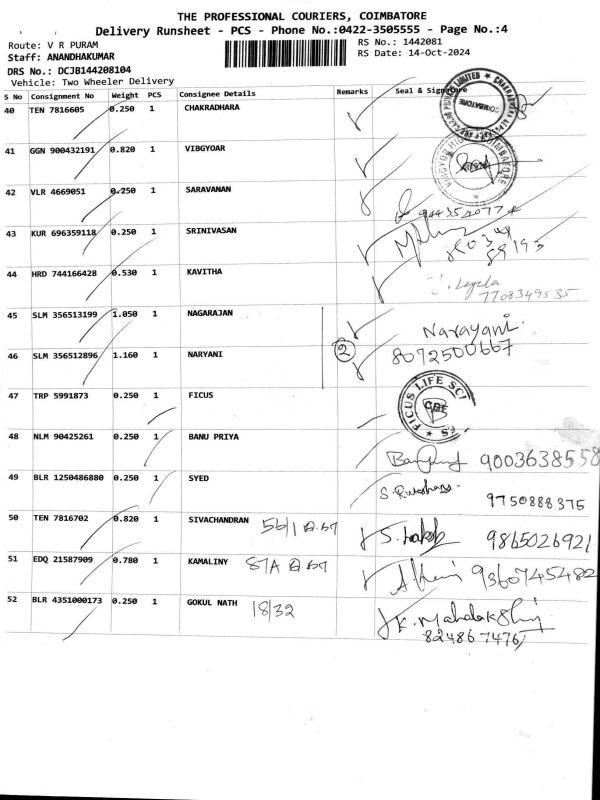 THE PROFESSIONAL COURIERS, COIMBATORE
Delivery Runsheet - PCS - Phone No.:0422-3505555 - Page No.:4
Route: V R PURAM
RS No.: 1442081
Staff: ANANDHAKUMAR
RS Date: 14-Oct-2024
DRS No.: DCJB144208104
Vehicle: Two Wheeler Delivery
S No Consignment No Weight PCS Consignee Details Remarks Seal & Signature
40 TEN 7816605 0.250 1 CHAKRADHARA
COIMBATORE
41 GGN 900432191 0.820 1 VIBGYOAR
42 VLR 4669051 0.250 1 SARAVANAN
43 KUR 696359118 0.250 1 SRINIVASAN
44 HRD 744166428 0.530 1 KAVITHA
7708349535
45 SLM 356513199 1.050 1 NAGARAJAN
Narayani
46 SLM 356512896 1.160 1 NARYANI 2
8072500667
47 TRP 5991873 0.250 1 FICUS
FICUS LIFE SCI
CBE
48 NLM 90425261 0.250 1 BANU PRIYA
9003638558
49 BLR 1250486880 0.250 1 SYED
9750888375
50 TEN 7816702 0.820 1 SIVACHANDRAN
9865026921
51 EDQ 21587909 0.780 1 KAMALINY
9360745482
52 BLR 4351000173 0.250 1 GOKUL NATH 18/32
K. Mahalakshmi
8248674761